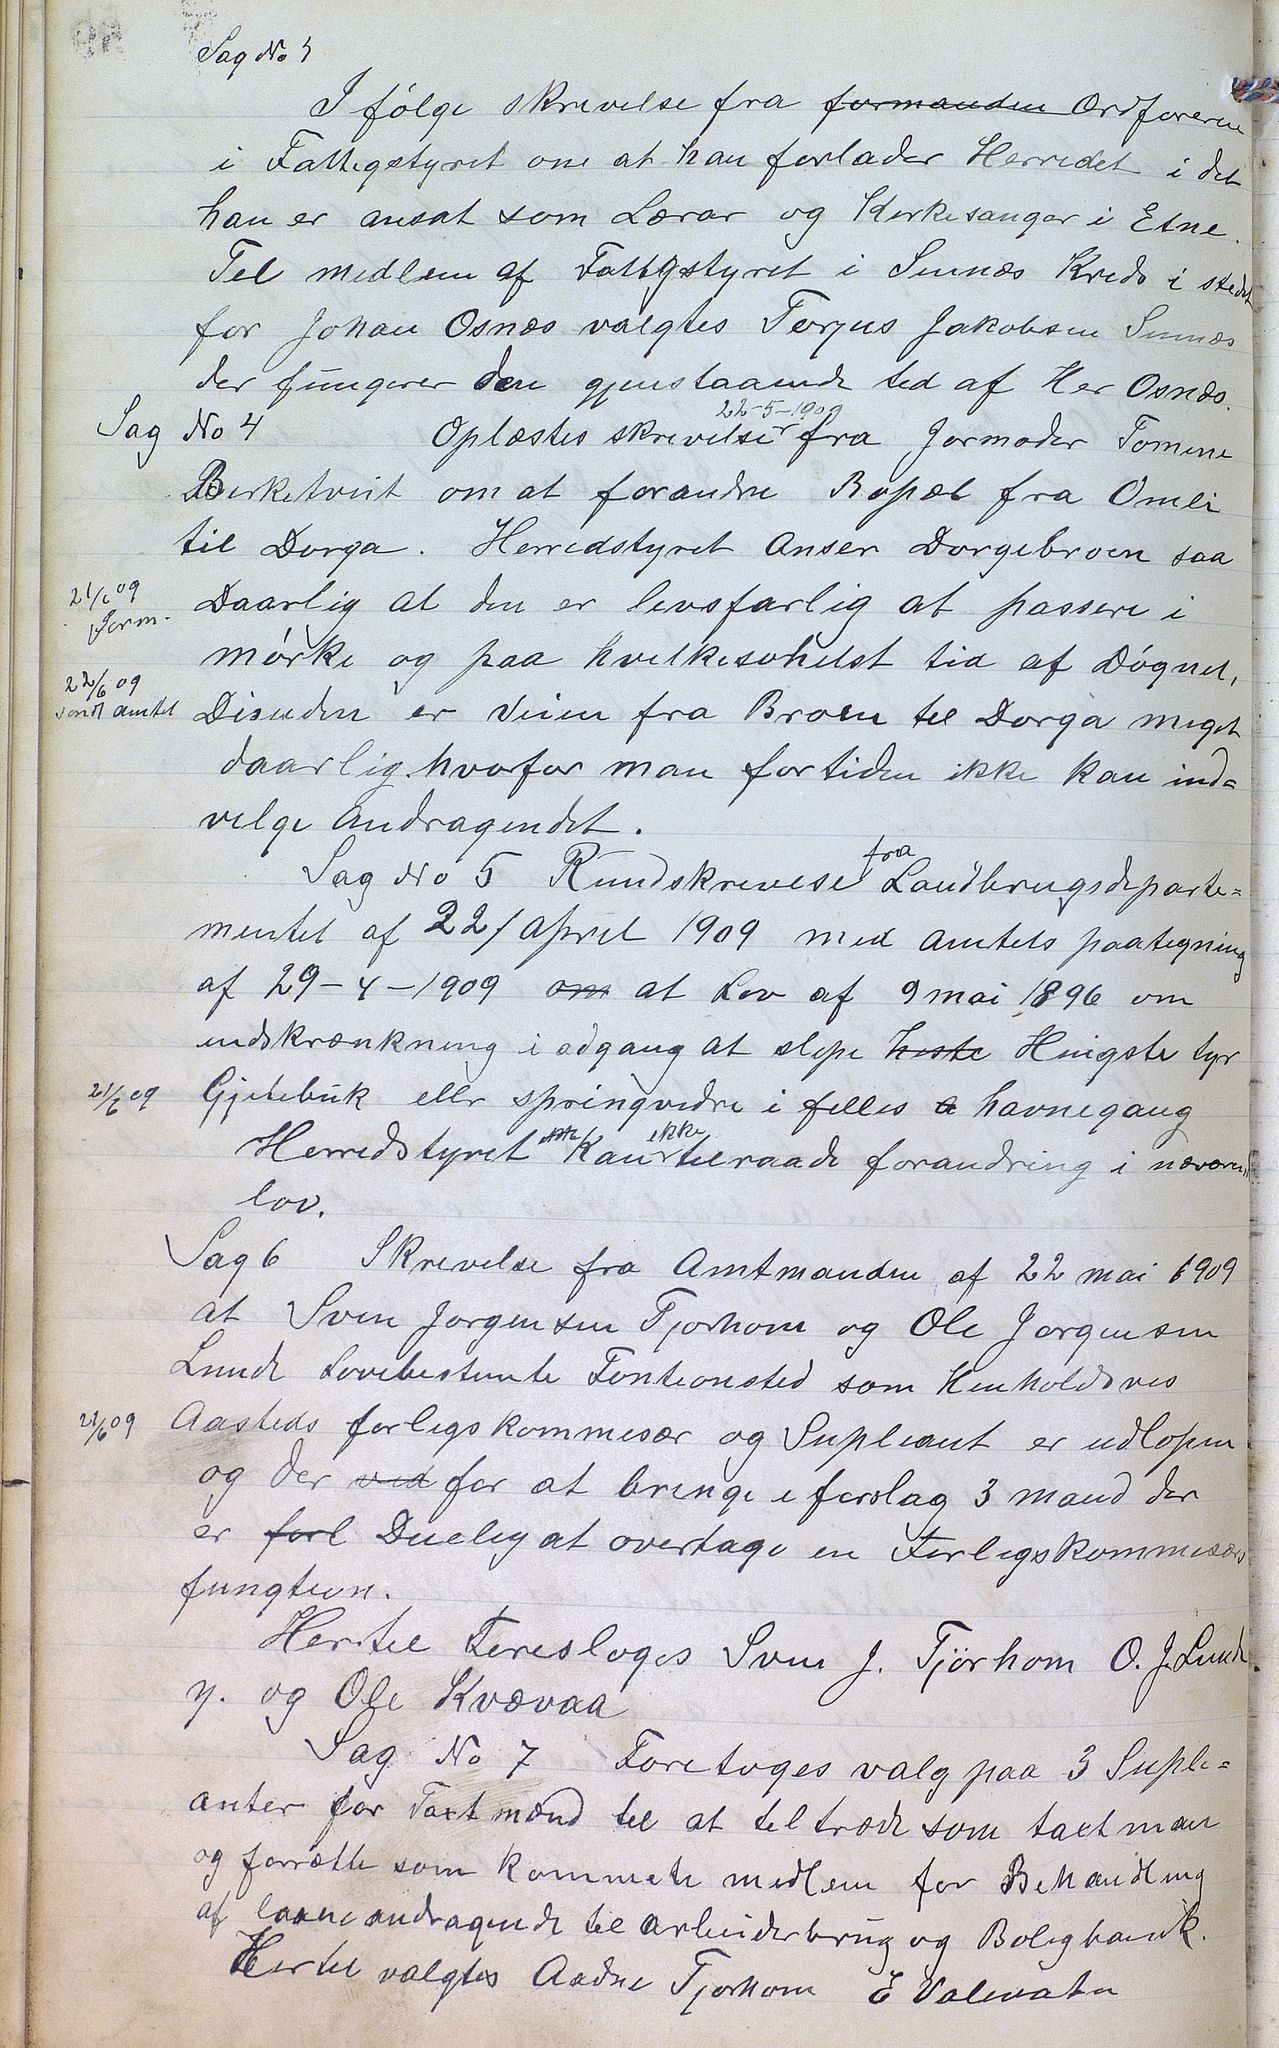 Sag No 3
I følge skrivelse fra formanden Ordføreren
i Fattigstyret om at han forlader Herredet i det
han er ansat som Lærar og Kirkesanger i Etne.
Til medlem af Fattigstyret i Sinnæs Kreds i stedet
for Johan Osnæs valgtes Terjus Jakobsen Sinnæs
der fungerer den gjenstaaende tid af Her Osnæs.
Sag No 4 Oplæstes skrivelse 22-5-1909 fra Jormoder Tomine
Birketveit om at forandre Bopæl fra Omli
til Dorga. Herredstyret Anser Dorgebroen saa
21/6 09 Daarlig at den er livsfarlig at passere i
mørke og paa hvilkesohelst tid af Døgnet,
22/6 09
sendt amtet Disuden er Veien fra Broen til Dorga meget
daarlig hvorfor man fortiden ikke kan ind=
vilge Andragendet.
Sag No 5 Rundskrivese fra Landbrugsdeparte=
mentet af 22/April 1909 med Amtets paategning
af 29-4-1909 om at Lov af 9 mai 1896 om
indskrænkning i adgang at slepe heste Hingste tyr
21/6 09 Gjetebuk ellr springvedre i felles a havnegang
Herredstyret kan ikke tilraade forandring i nævære
lov.
Sag 6 Skrivelse fra Amtmanden af 22 mai 1909
at Sven Jørgensen Tjørhom og Ole Jørgensen
Lunde Lovbestemte Fontionstid som Henholdsvis
21/6 09 Aasteds forligskommesær og Supleant er udløpen
og der ved for at bringe i forslag 3 mand der
er forl Duelig at overtage en Forligskommesærs
fungtion.
Hertil Foresloges Sven J. Tjörhom O. J. Lunde
y. og Ole Kvævaa
Sag No 7 Foretoges valg paa 3 Suple=
anter for Taxtmænd til at tiltræde som taxtman
og forrætte som kommete medlem for Behandling
af laaneandragende til Arbeiderbrug og Boligbank.
Hertil valgtes Aadne Tjørhom E Valevatn